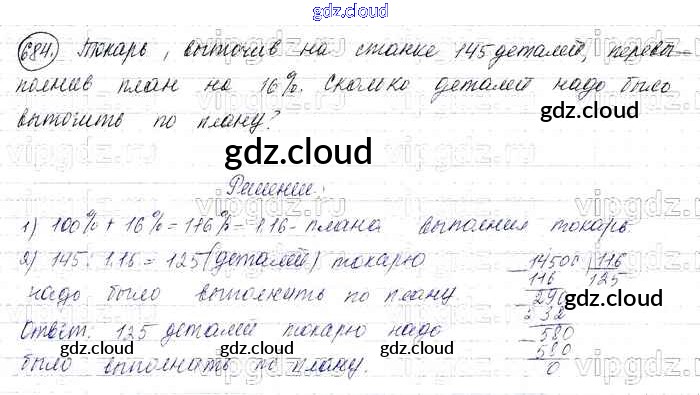 gdz.cloud
684. Токарь, выточив на станке 145 деталей, перевы-
полнив план на 16%. Сколько деталей надо было
выточить по плану?
gdz.cloud
gdz.cloud
Решение:
1) 100% + 16% = 116% = 1.16 - плана выполнил токарь.
2) 145 : 1.16 = 125 (деталей) токарю
надо было выполнить по плану.
14500 116
116 125
290
232
580
580
0
Ответ: 125 деталей токарю надо
было выполнить по плану.
gdz.cloud
gdz.cloud
gdz.cloud
vipgdz.ru
vipgdz.ru
vipgdz.ru